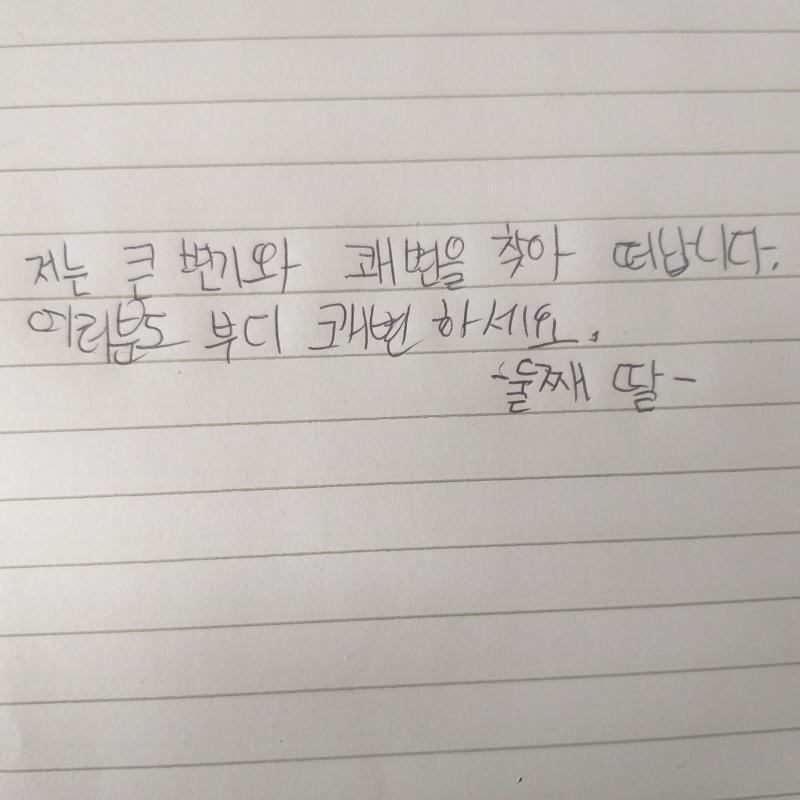 저는 큰 변기와 쾌변을 찾아 떠납니다.
여러분도 부디 쾌변 하세요.
-둘째 딸-